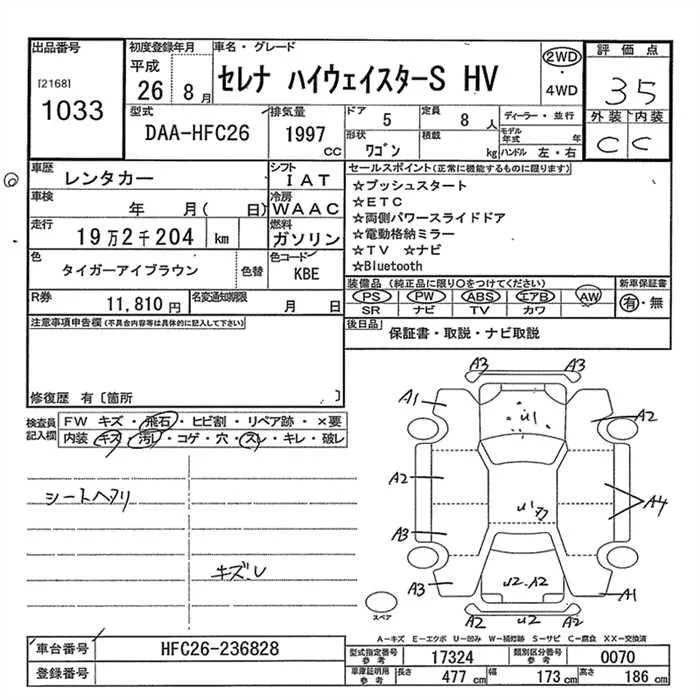 出品番号
[2168]
1033
初度登録年月
平成
26 8月
車名・グレード
セレナ ハイウェイスターS HV
2WD
・
4WD
評価点
35
外装 内装
C C
型式
DAA-HFC26
排気量
1997
CC
ドア
5
定員
8 人
形状
ワゴン
積載
kg
ディーラー・並行
モデル年式 年
ハンドル 左・右
車歴
レンタカー
シフト
IAT
車検
年 月( 日)
冷房
WAAC
走行
19万2千204 km
燃料
ガソリン
色
タイガーアイブラウン
色替
色コード
KBE
R券
11,810 円
名変通知期限
月 日
セールスポイント(正常に機能するものに限ります)
☆プッシュスタート
☆ETC
☆両側パワースライドドア
☆電動格納ミラー
☆TV ☆ナビ
☆Bluetooth
装備品 (純正品に限り○をつけてください)
PS PW ABS エアB AW
SR ナビ TV カワ
新車保証書
有・無
後日品
保証書・取説・ナビ取説
注意事項申告欄(不具合内容等は具体的に記入して下さい)
修復歴 有〔箇所 〕
検査員
記入欄
FW キズ・飛石・ヒビ割・リペア跡・×要
内装 キズ・汚レ・コゲ・穴・スレ・キレ・破レ
シートヘタリ
キズ・U
A3 A3
A1
U1
A2
A2
U1
A4
A3
A3
U2.A2
A1
A2 U2 A2
スペア
A−キズ E−エクボ U−凹み W−補修跡 S−サビ C−腐食 XX−交換済
車台番号
HFC26-236828
登録番号
型式指定番号
参考
17324
類別区分番号
参考
0070
車庫証明用
参考
長さ
477 cm
幅
173 cm
高さ
186 cm